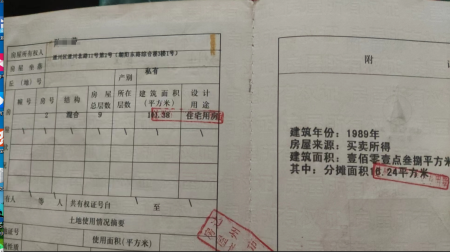 房屋所有权人
房屋坐落
丘（地）号
产别
私有
幢号 房号 结构 房屋总层数 所在层数 建筑面积（平方米） 设计用途
2 混合 9 101.38 住宅用房
人 等 人 共有权证号自 至
土地使用情况摘要
使用面积(平方米)
附
建筑年份：1989年
房屋来源：买卖所得
建筑面积：壹佰零壹点叁捌平方米
其中：分摊面积16.24平方米